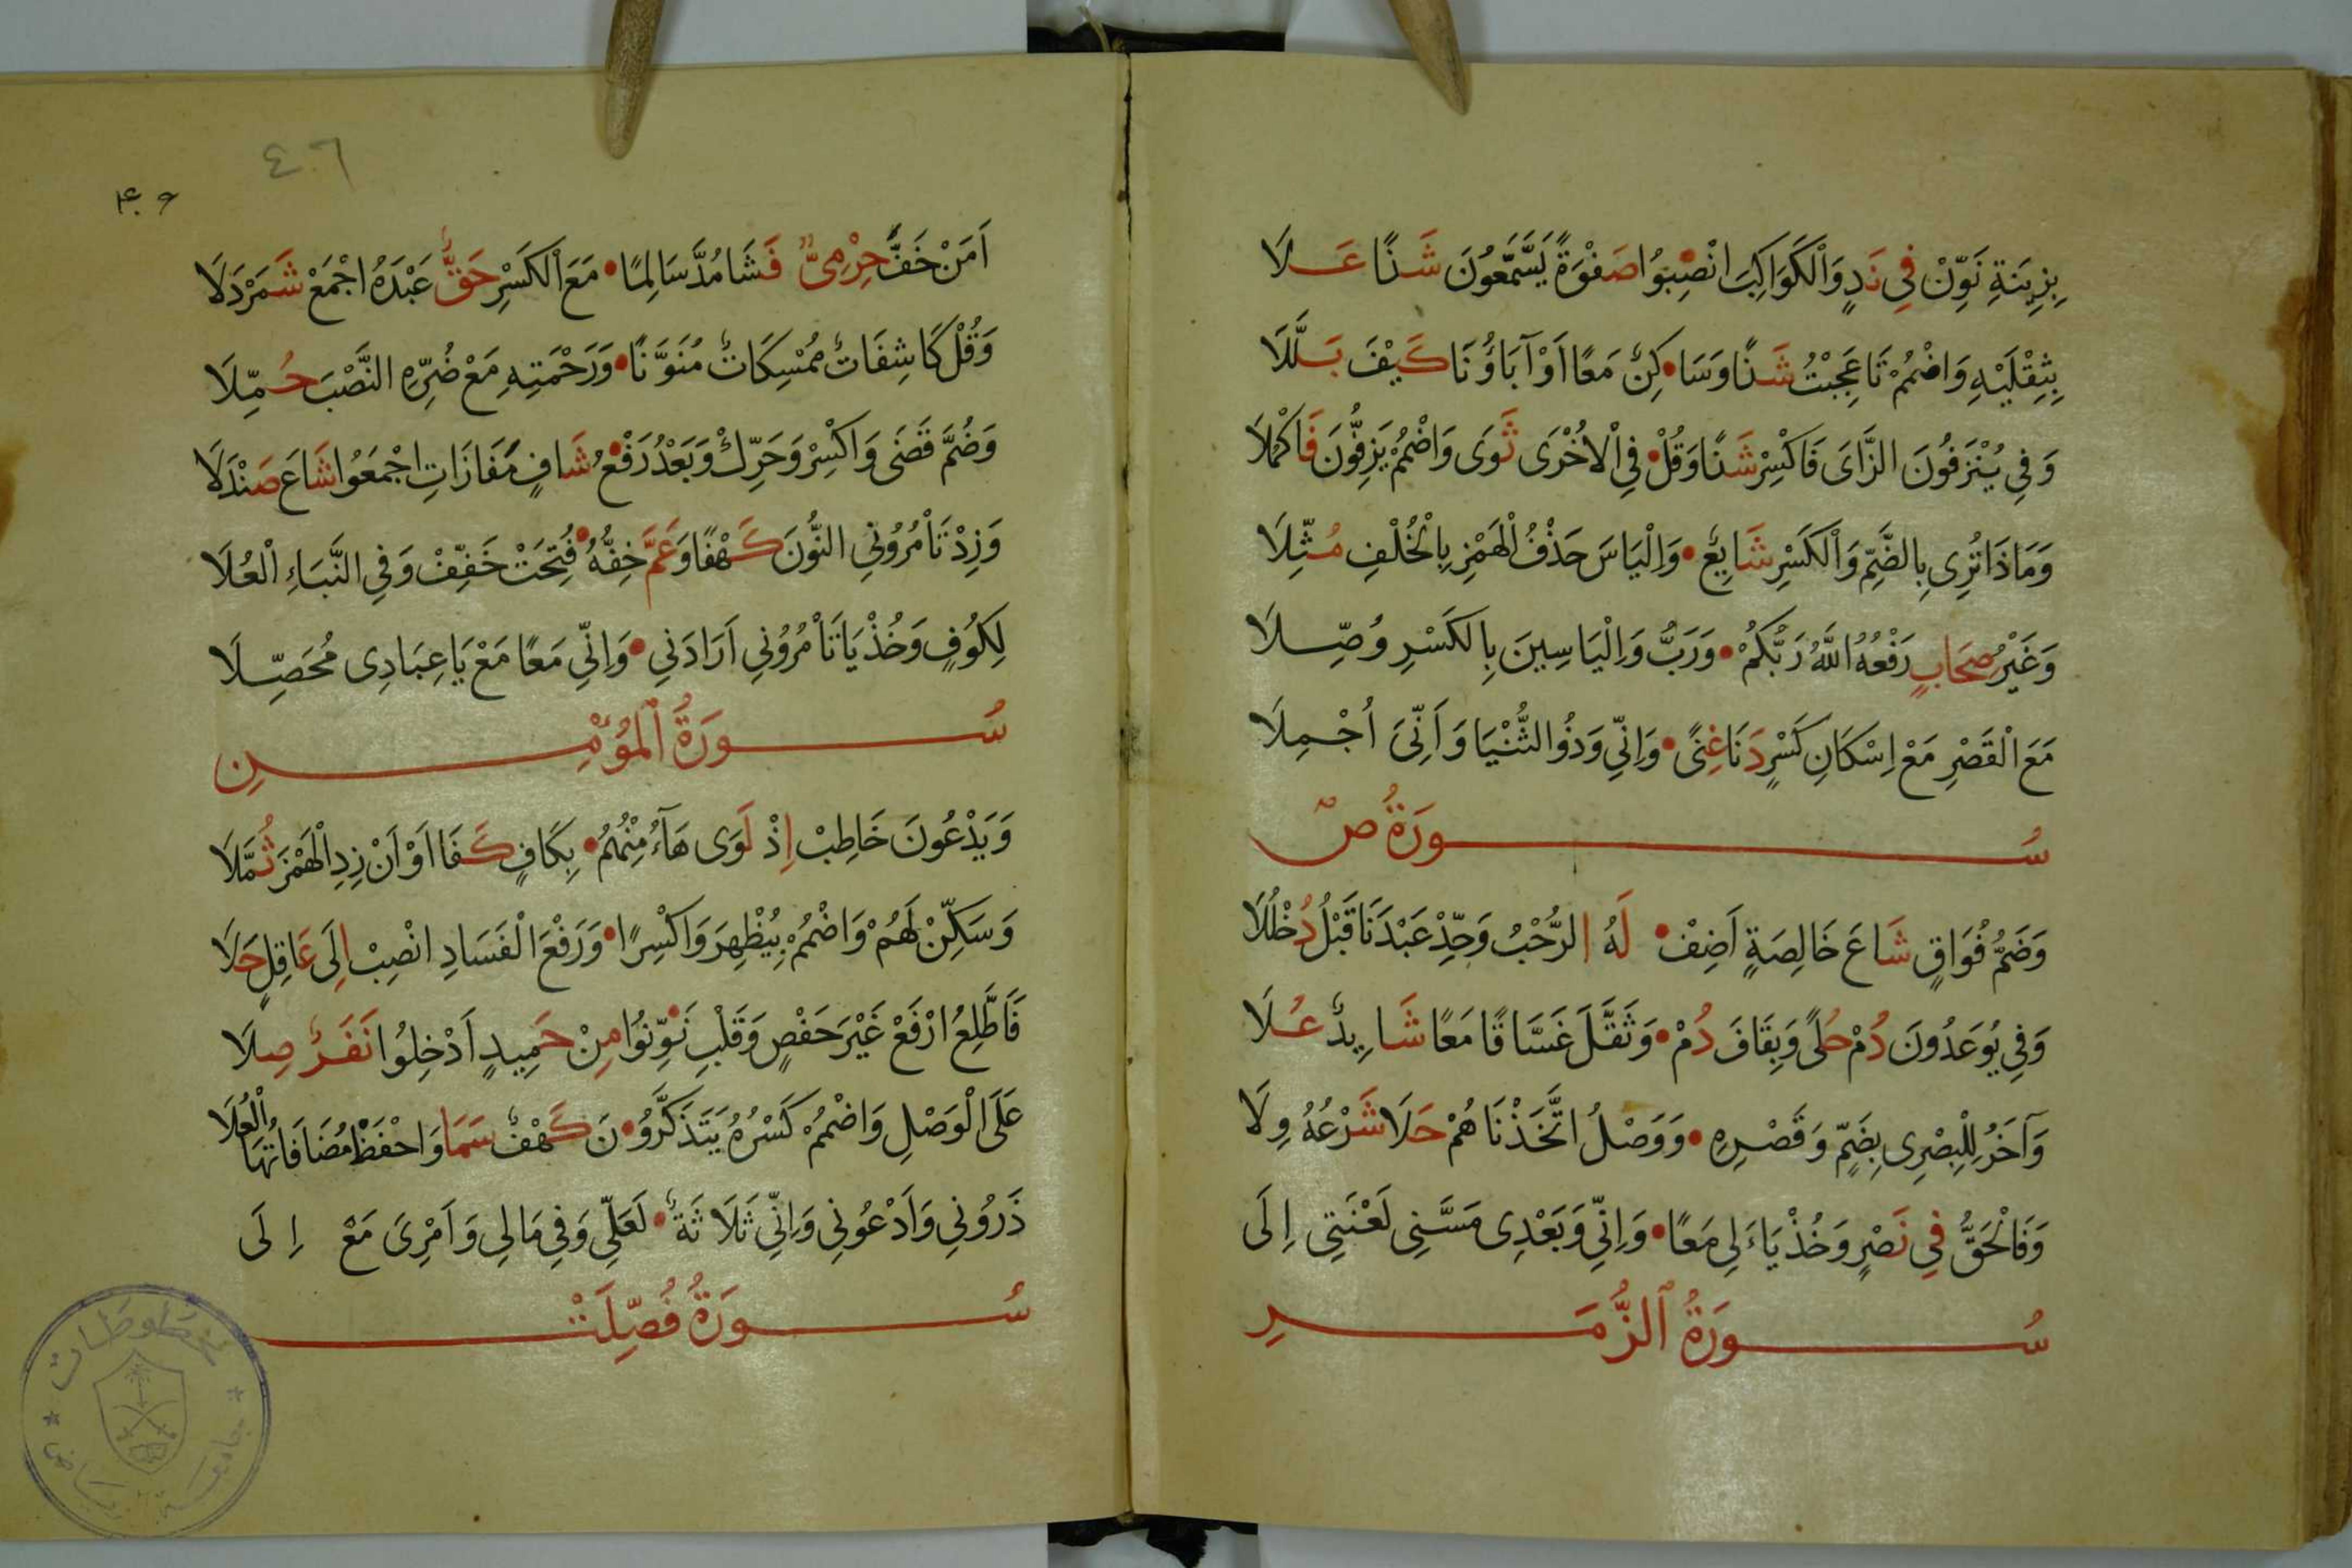 بِزِينَةِ نَوِّنْ فِي نَدٍ وَالْكَوَاكِبَ انْصِبُوا صَفْوَةً يَسَّمَّعُونَ شَذًا عَلَا
بِثِقْلَيْهِ وَاضْمُمْ تَا عَجِبْتُ شَذًا وَسَا • كِنٌ مَعًا اَوْ آبَاؤُنَا كَيْفَ بَلَّلَا
وَفِي يُنْزَفُونَ الزَّاىَ فَاكْسِرْ شَذًا وَقُلْ • فِي الْاُخْرَى ثَوَى وَاضْمُمْ يَزِفُّونَ فَاكْمُلَا
وَمَاذَا تُرِى بِالضَّمِّ وَالْكَسْرِ شَايِعٌ • وَالْيَاسَ حَذْفُ الْهَمْزِ بِالْخُلْفِ مُثِّلَا
وَغَيْرُ صِحَابٍ رَفْعُهُ اللَّهُ رَبُّكُمْ • وَرَبُّ وَالْيَاسِينَ بِالكَسْرِ وُصِّلَا
مَعَ الْقَصْرِ مَعْ اِسْكَانِ كَسْرٍ دَنَا غِنًى • وَاِنِّي وَذُو الثُّنْيَا وَاَنِّىَ اُجْمِلَا
سُورَةُ صٓ
وَضَمُّ فُوَاقٍ شَاعَ خَالِصَةٍ اَضِفْ • لَهُ الرُّحْبُ وَحِّدْ عَبْدَنَا قَبْلُ دُخْلُلَا
وَفِي يُوعَدُونَ دُمْ حُلًى وَبِقَافَ دُمْ • وَثَقَّلَ غَسَّاقًا مَعًا شَايِدٌ عُلَا
وَآخَرُ لِلْبِصْرِى بِضَمٍّ وَقَصْرِهِ • وَوَصْلُ اتَّخَذْنَاهُمْ حَلَا شَرْعُهُ وِلَا
وَفَالْحَقُّ فِي نَصْرٍ وَخُذْ يَاءَ لِي مَعًا • وَاِنِّي وَبَعْدِى مَسَّنِي لَعْنَتِي اِلَى
سُورَةُ الزُّمَرِ
٤٠٦
٤٠٦
اَمَنْ خَفَّ حِرْمِىٌّ فَشَا مُدَّ سَالِمًا • مَعَ الْكَسْرِ حَقٌّ عَبْدَهُ اجْمَعْ شَمَرْدَلَا
وَقُلْ كَاشِفَاتٌ مُمْسِكَاتٌ مُنَوَّنًا • وَرَحْمَتِهِ مَعْ ضُرِّهِ النَّصْبَ حُمِّلَا
وَضُمَّ قَضَى وَاكْسِرْ وَحَرِّكْ وَبَعْدُ رَفْعُ • شَافٍ مَفَازَاتِ اجْمَعُوا شَاعَ صَنْدَلَا
وَزِدْ تَاْمُرُونِي النُّونَ كَهْفًا وَعَمَّ خِفُّهُ • فُتِحَتْ خَفِّفْ وَفِي النَّبَاءِ الْعُلَا
لِكُوفٍ وَخُذْ يَا تَاْمُرُونِي اَرَادَنِي • وَاِنِّي مَعًا مَعْ يَا عِبَادِى مُحَصِّلَا
سُورَةُ الْمُؤْمِنِ
وَيَدْعُونَ خَاطِبْ اِذْ لَوَى هَاءُ مِنْهُمُ • بِكَافٍ كَفَا اَوْ اَنْ زِدِ الْهَمْزَ ثُمَّلَا
وَسَكِّنْ لَهُمْ وَاضْمُمْ بِيُظْهِرَ وَاكْسِرًا • وَرَفْعَ الْفَسَادِ انْصِبْ اِلَى عَاقِلٍ حَلَا
فَاَطَّلِعُ ارْفَعْ غَيْرَ حَفْصٍ وَقَلْبِ نَوِّنُوا مِنْ حَمِيدٍ اَدْخِلُوا نَفَرٌ صِلَا
عَلَى الْوَصْلِ وَاضْمُمْ كَسْرُهُ يَتَذَكَّرُو • نَ كَهْفٌ سَمَا وَاحْفَظْ مُضَافَاتُهَا الْعُلَا
ذَرُونِي وَاَدْعُونِي وَاِنِّي ثَلَاثَةٌ • لَعَلِّي وَفِي مَالِي وَاَمْرِىَ مَعْ اِلَى
سُورَةُ فُصِّلَتْ
مخطوطات
جامعة الرياض